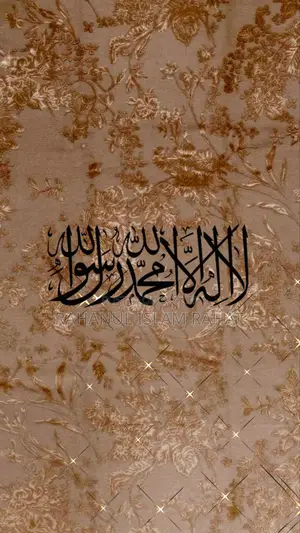 لا اله الا الله محمد رسول الله
RAHANUL ISLAM RAFAT